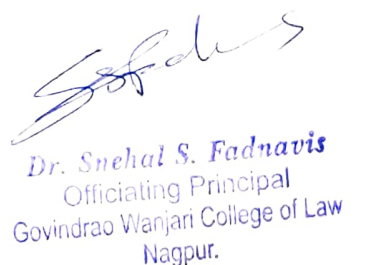 Dr. Snehal S. Fadnavis
Officiating Principal
Govindrao Wanjari College of Law
Nagpur.